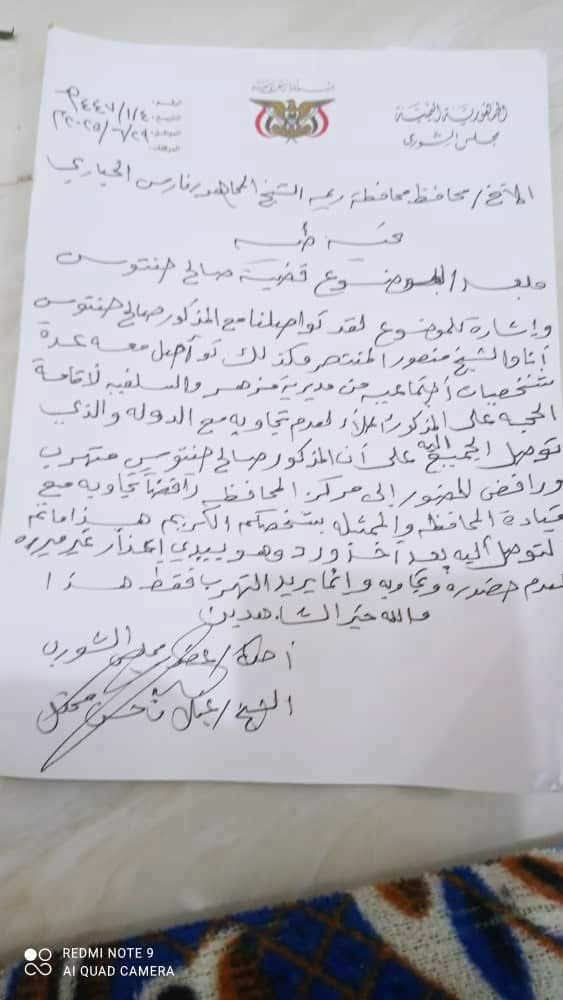 الجمهورية اليمنية
مجلس الشورى
التاريخ: ١٤٤٧/١/٤
الموافق: ٢٠٢٥/٦/٢٩م
الأخ/ محافظ محافظة ريمه الشيخ المجاهد فارس الحباري
تحية طيبه
وبعد/ الموضوع قضية صالح حنتوس
وإشارة للموضوع لقد تواصلنا مع المذكور صالح حنتوس
أنا والشيخ منصور المنتصر وكذلك تواصل معه عدة
شخصيات إجتماعيه من مديرية مزهر والسلفيه لأقامة
الحجه على المذكور لعدم تجاوبه مع الدوله والذي
توصل الجميع إليه على أن المذكور صالح حنتوس متهرب
ورافض للحضور إلى مركز المحافظه رافضاً تجاوبه مع
قيادة المحافظه والممثله بشخصكم الكريم هذا ماتم
التوصل إليه بعد أخذ ورد وهو يبدي إعذار غير مبرره
لعدم حضوره وتجاوبه وانما يريد التهرب فقط هذا
والله خير الشاهدين
أخوكم/ عضو مجلس الشورى
الشيخ/
REDMI NOTE 9
AI QUAD CAMERA